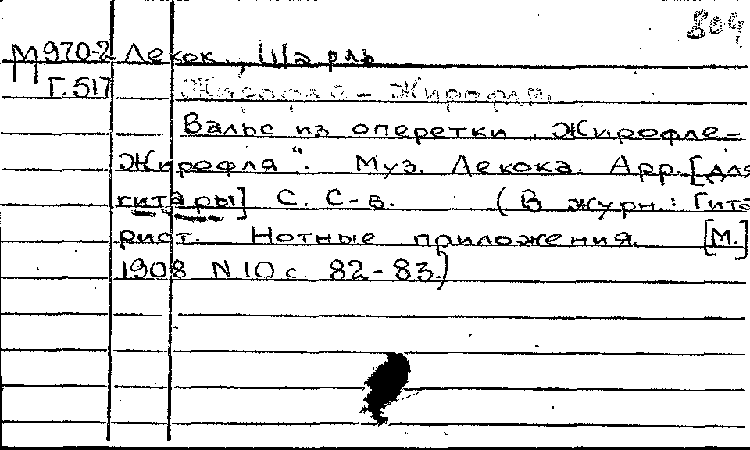 809
М970-2 Лекок, Шарль
Г.517 Жирофле - Жирофля.
Вальс из оперетки „Жирофле-
Жирофля". Муз. Лекока. Арр. [для
гитары] С. С-в. (В журн.: Гита
рист. Нотные приложения. [М.]
1908 N 10 с 82-83)